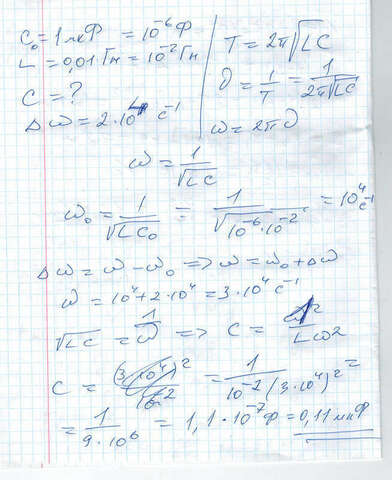 C₀ = 1 мкФ = 10⁻⁶ Ф
L = 0,01 Гн = 10⁻² Гн
C = ?
Δω = 2·10⁴ с⁻¹
T = 2π√LC
ϑ = 1/T = 1/2π√LC
ω = 2πϑ
ω = 1/√LC
ω₀ = 1/√LC₀ = 1/√10⁻⁶·10⁻² = 10⁴ с⁻¹
Δω = ω − ω₀ => ω = ω₀ + Δω
ω = 10⁴ + 2·10⁴ = 3·10⁴ с⁻¹
√LC = 1/ω => C = 1/Lω²
C = = 1/10⁻²(3·10⁴)² =
= 1/9·10⁶ = 1,1·10⁻⁷ Ф = 0,11 мкФ